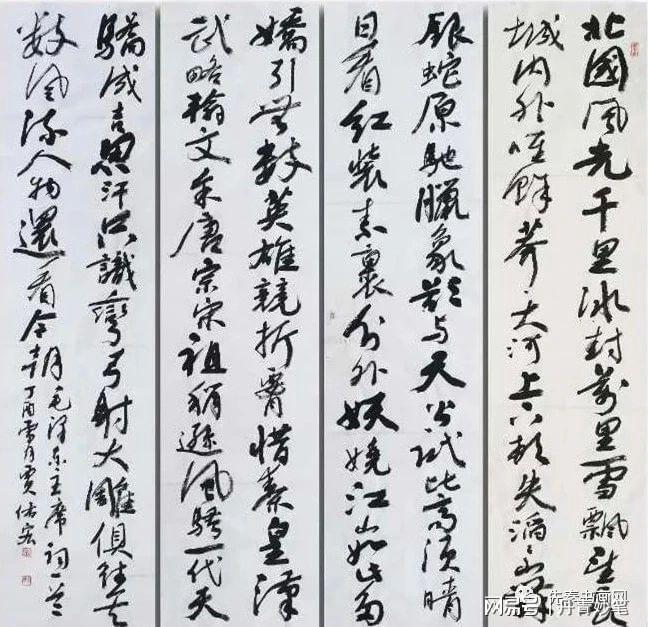 北國風光千里冰封萬里雪飄望長
城內外唯餘莽莽大河上下頓失滔滔山舞
銀蛇原馳臘象欲與天公試比高須晴
日看紅裝素裹分外妖嬈江山如此多
嬌引無數英雄競折腰惜秦皇漢
武略輸文采唐宗宋祖稍遜風騷一代天
驕成吉思汗只識彎弓射大雕俱往矣
數風流人物還看今朝
毛澤東主席詞一首
丁酉雪月賈
网易号